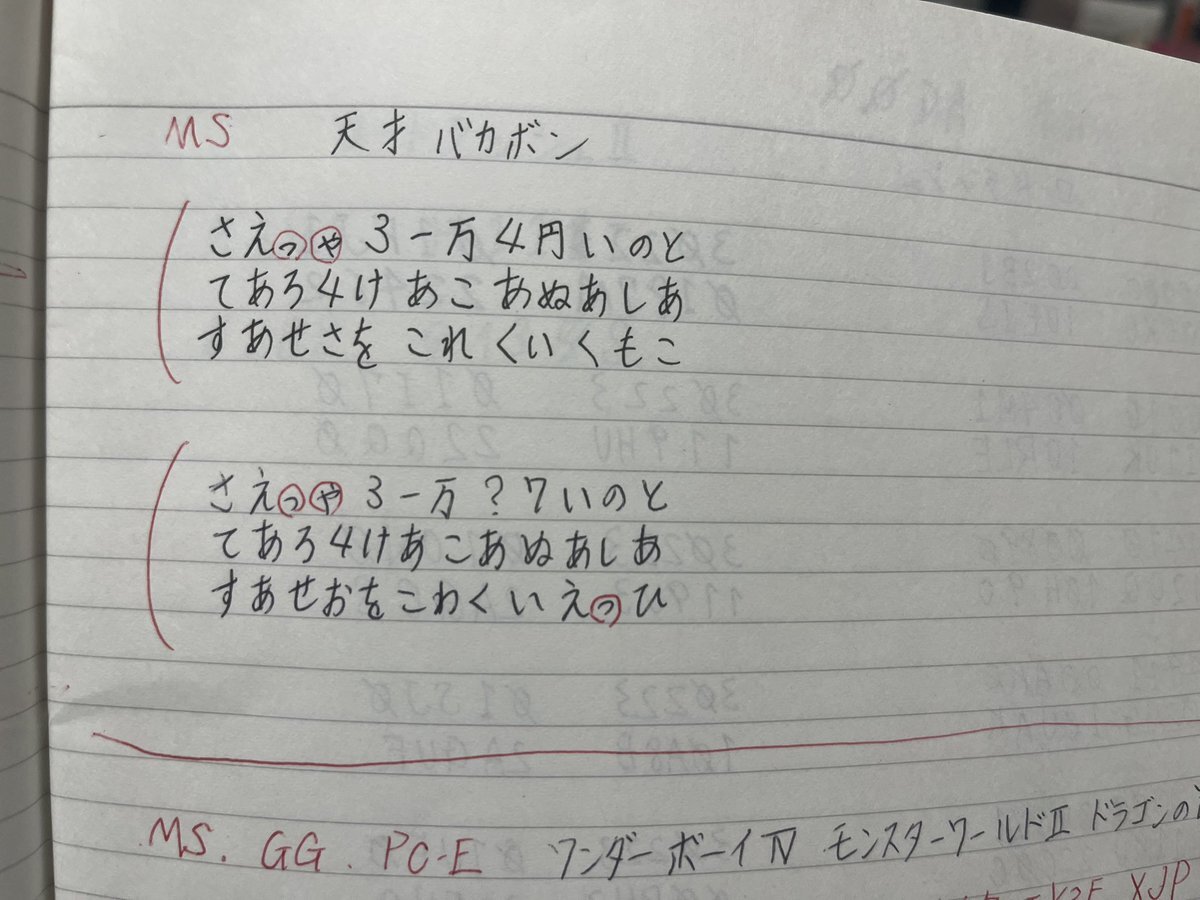 MS 天才バカボン
さえっゃ3一万4円いのと
てあろ4けあこあぬあしあ
すあせさをこれくいくもこ
さえっゃ3一万?7いのと
てあろ4けあこあぬあしあ
すあせおをこわくいえっひ
MS. GG. PC-E ワンダーボーイIV モンスターワールドII ドラゴンの
XJP